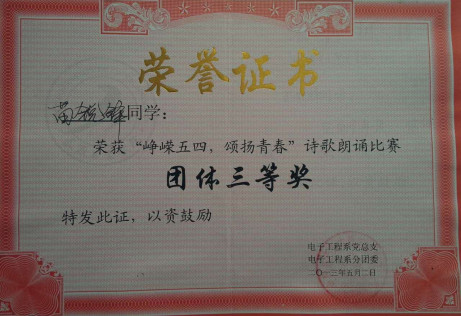 荣誉证书
苗锐锋同学：
荣获“峥嵘五四，颂扬青春”诗歌朗诵比赛
团体三等奖
特发此证，以资鼓励
电子工程系党总支
电子工程系分团委
二〇一三年五月二日